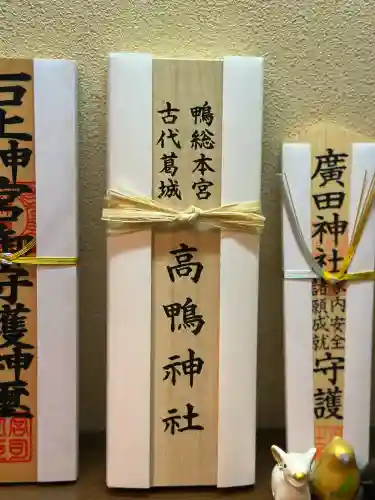 廣田神社
家内安全
諸願成就
守護
鴨総本宮
古代葛城
高鴨神社
石上神宮御守護神璽